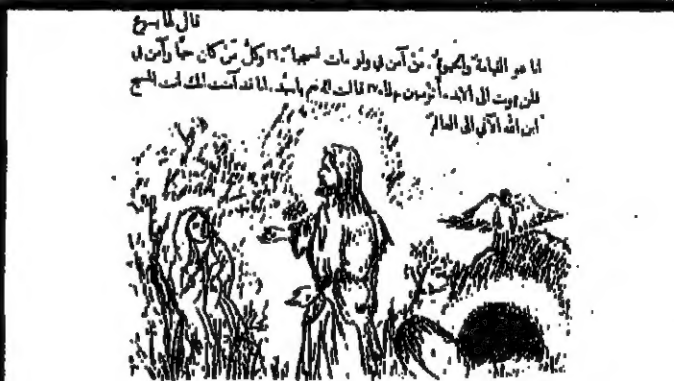 قال لها يسوع
انا هو القيامة والحيوة. مَن آمن بي ولو مات فسيحيا. ٢٦ وكلُّ مَن كان حيًّا وآمن بي
فلن يموت الى الابد. أتؤمنين بهذا. ٢٧ قالت لهُ نعم يا سيد. انا قد آمنت انك انت المسيح
ابن الله الآتي الى العالم